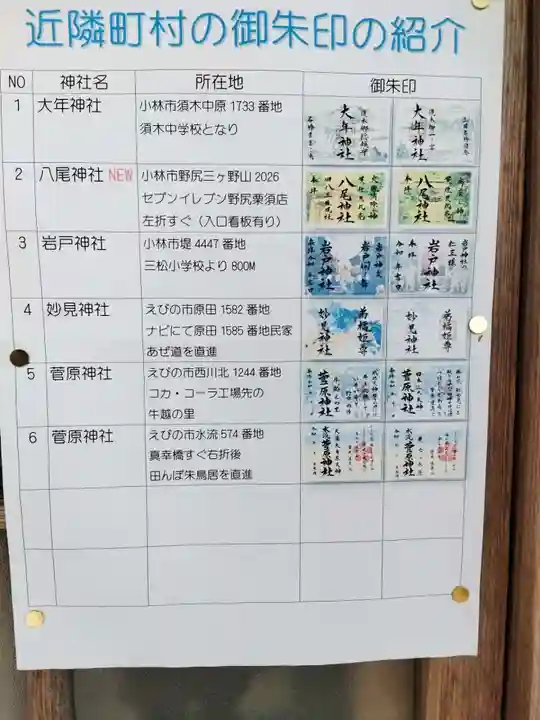 近隣町村の御朱印の紹介
NO 神社名 所在地 御朱印
1 大年神社 小林市須木中原 1733 番地
須木中学校となり
大年神社 大年神社
2 八尾神社 NEW 小林市野尻三ヶ野山 2026
セブンイレブン野尻栗須店
左折すぐ（入口看板有り）
八尾神社 八尾神社
3 岩戸神社 小林市堤 4447 番地
三松小学校より 800M
岩戸神社 岩戸神社
4 妙見神社 えびの市原田 1582 番地
ナビにて原田 1585 番地民家
あぜ道を直進
妙見神社 妙見神社
5 菅原神社 えびの市西川北 1244 番地
コカ・コーラ工場先の
牛越の里
菅原神社 菅原神社
6 菅原神社 えびの市水流 574 番地
真幸橋すぐ右折後
田んぼ朱鳥居を直進
菅原神社 菅原神社